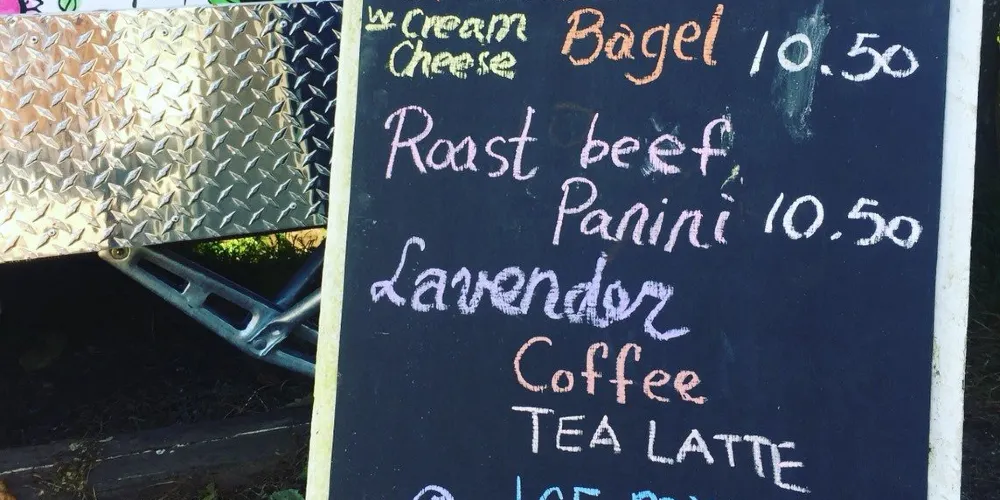 w Cream Bagel 10.50
Cheese
Roast beef
Panini 10.50
Lavender
Coffee
TEA LATTE